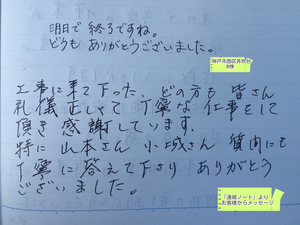 明日で 終了ですね。
どうも ありがとうございました。
神戸市西区井吹台
工事に来て下った、どの方も 皆さん
礼儀正しくて 丁寧な 仕事をして
頂き 感謝しています。
特に 山本さん 小城さん 質問にも
丁寧に 答えて下さり ありがとう
ございました。
「連絡ノート」より
お客様からメッセージ